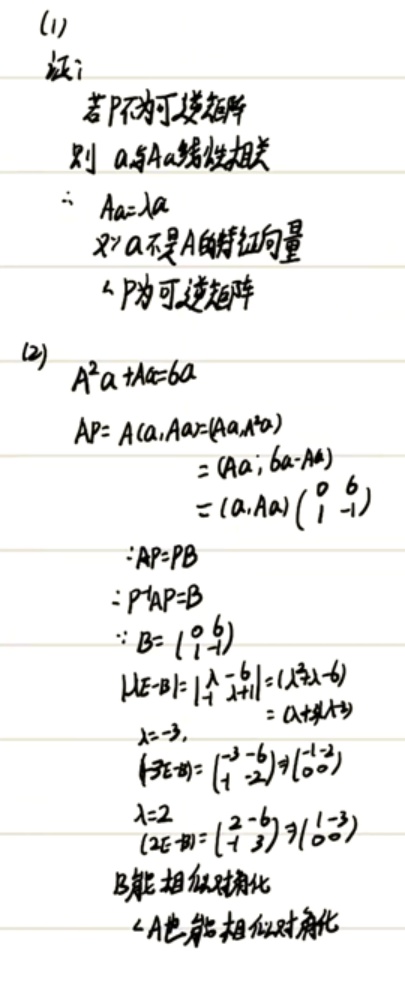 (1)
证:
若P不为可逆矩阵
则 a与Aa线性相关
∴ Aa=λa
又∵a不是A的特征向量
∴P为可逆矩阵
(2)
A²a+Aa=6a
AP=A(a,Aa)=(Aa,A²a)
=(Aa,6a-Aa)
=(a,Aa)(0 6
1 -1)
∴AP=PB
∴P⁻¹AP=B
∵B=(0 6
1 -1)
|λE-B|=|λ -6
-1 λ+1|=(λ²+λ-6)
=(λ+3)(λ-2)
λ=-3,
(-3E-B)=(-3 -6
-1 -2)⇒(-1 -2
0 0)
λ=2
(2E-B)=(2 -6
-1 3)⇒(1 -3
0 0)
B能相似对角化
∴A也能相似对角化